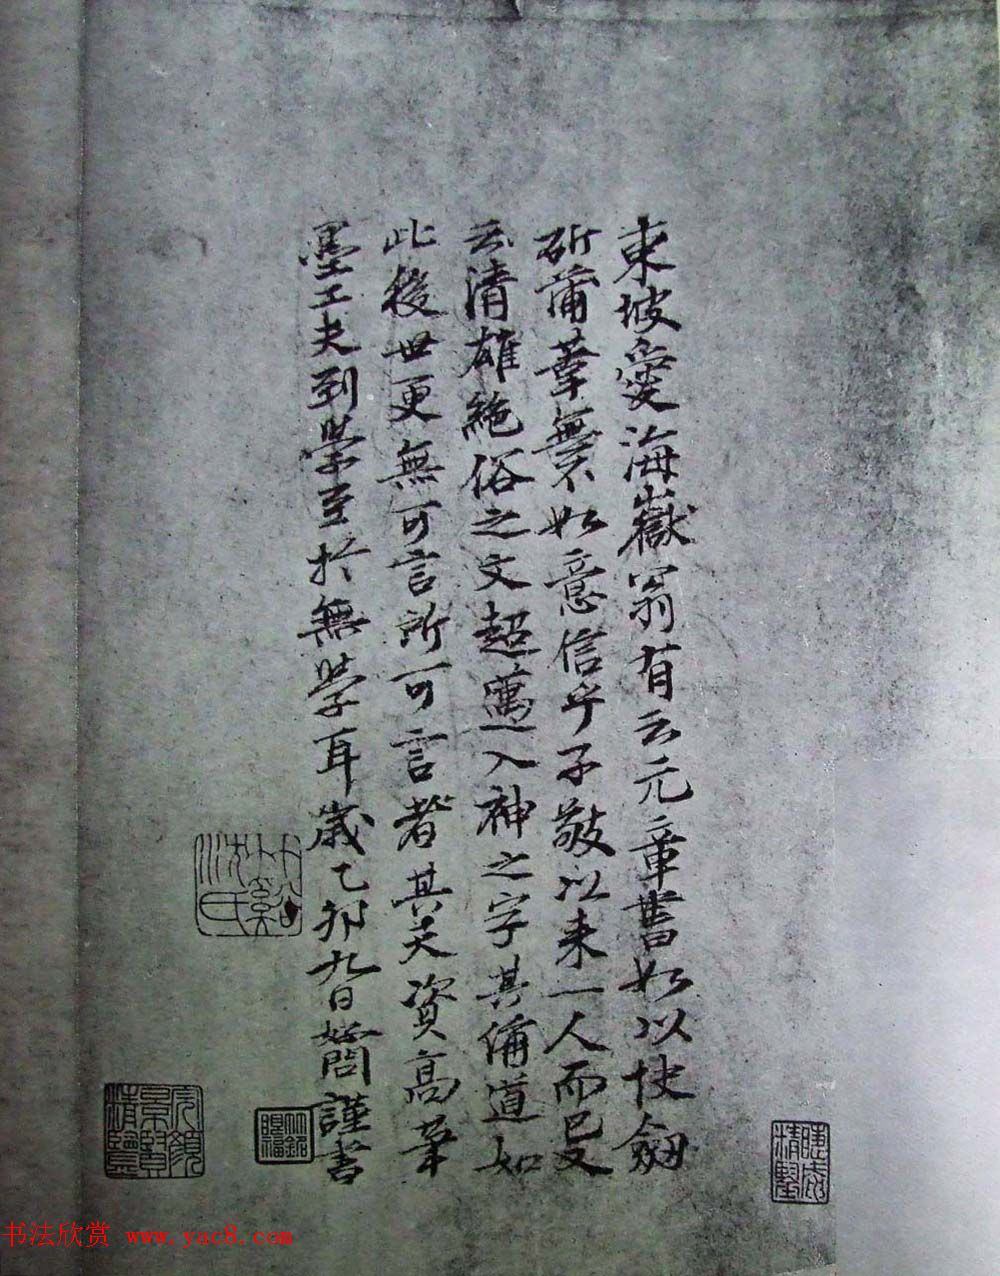 東坡愛海嶽翁有云元章書如以快劒
斫蒲葦無不如意信乎子敬以来一人而已又
云清雄絶俗之文超邁入神之字其俻道如
此後世更無可言所可言者其天資高筆
墨工夫到學至於無學耳歳乙卯九日好問謹書
沈氏
完顏景賢精鑒
書法欣赏 www.yac8.com